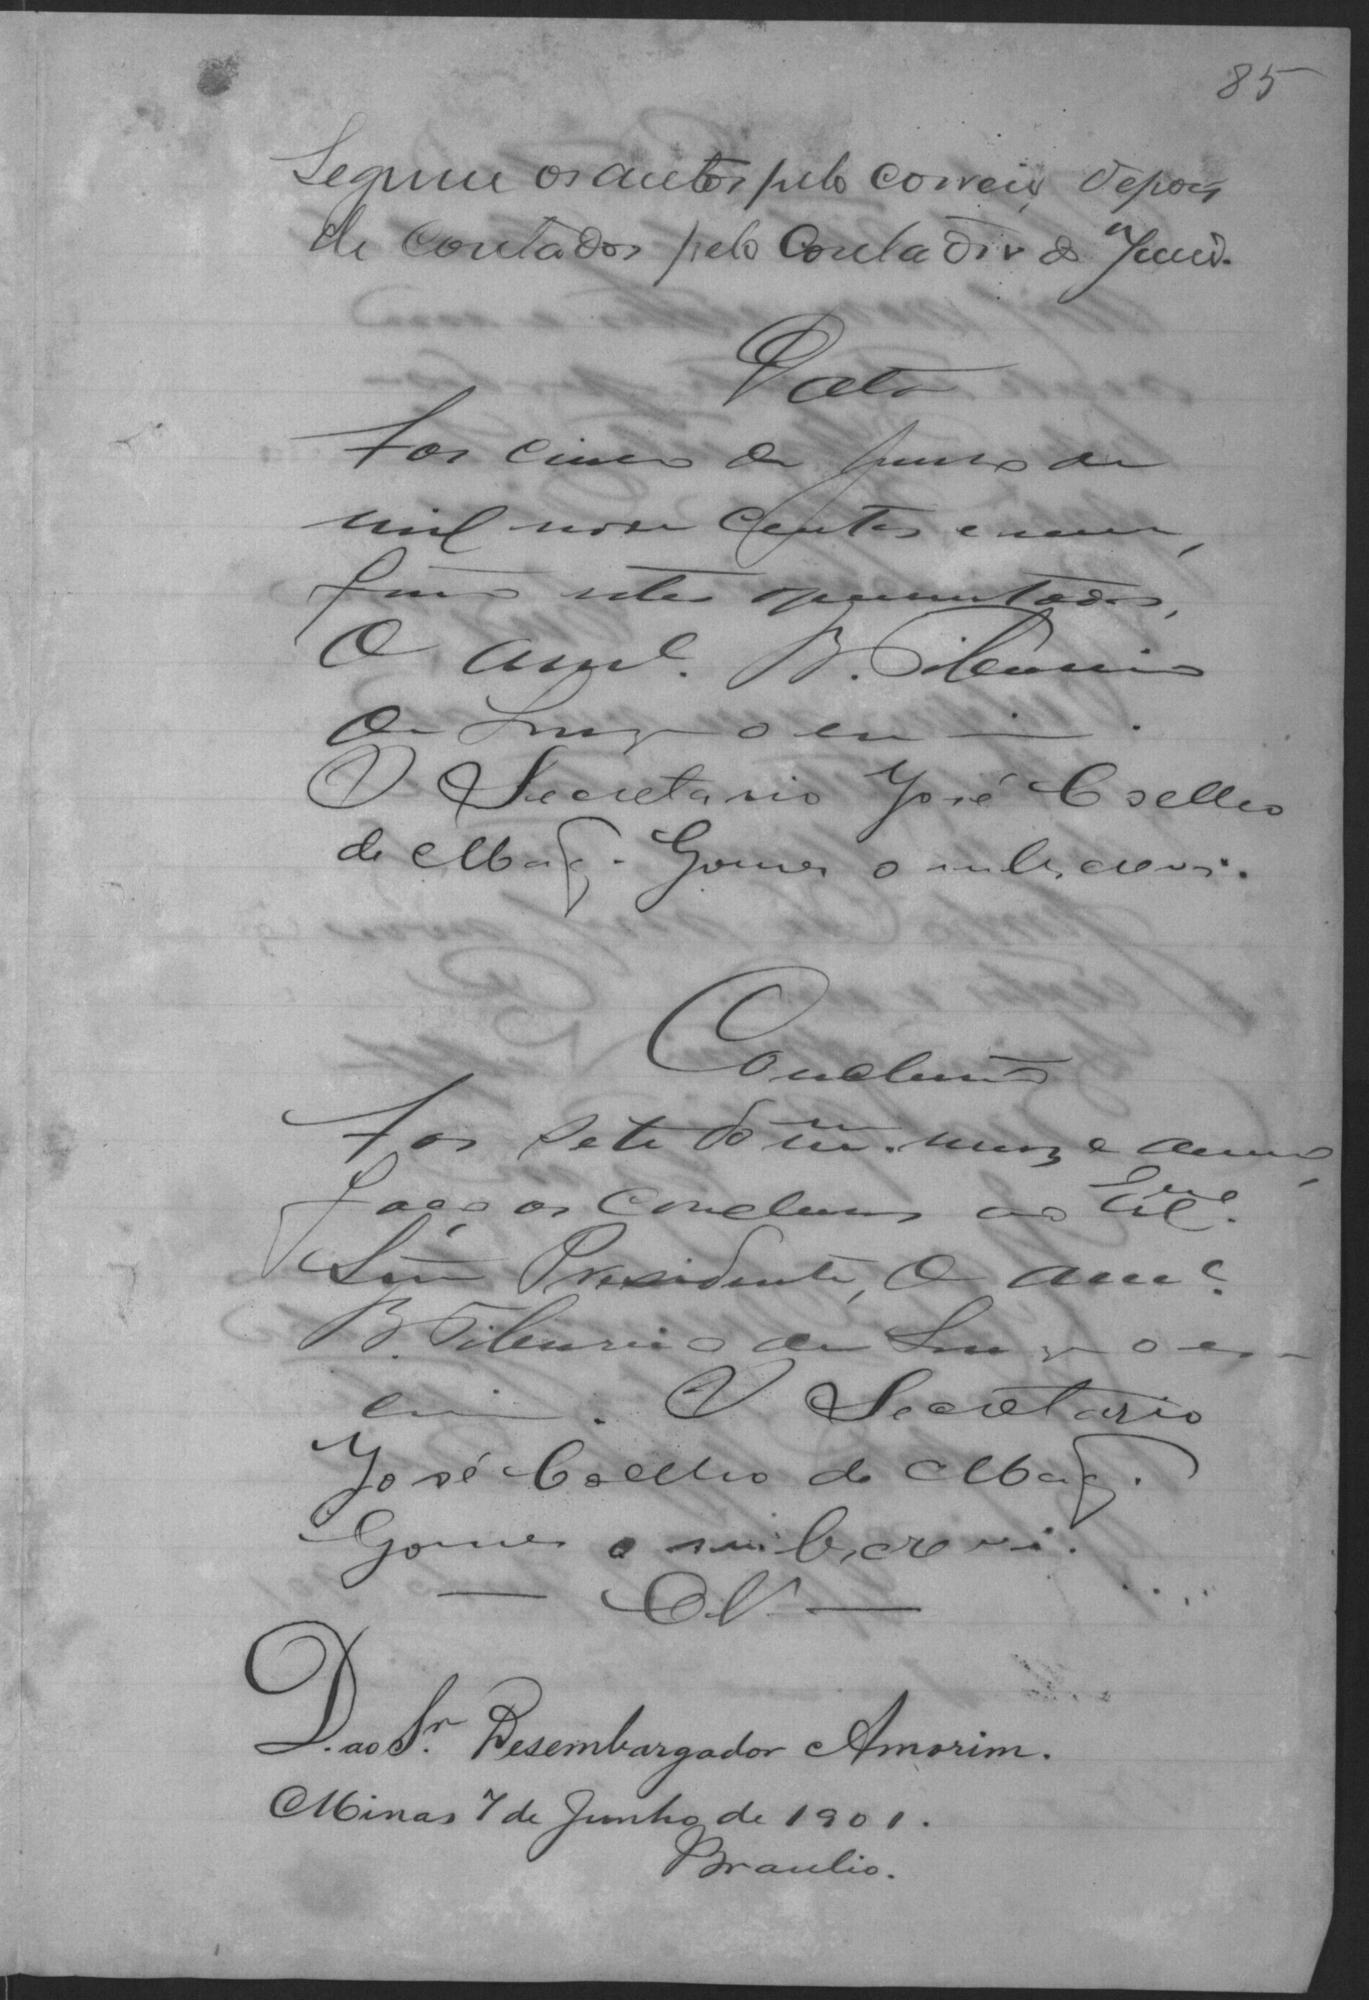 85
Seguem os autos pelo correio, depois
de contados pelo Contador do Juizo.
Data
Aos cinco de Junho de
mil nove centos e um,
forão estes apresentados,
O aml. B. Tiburcio
de Souza o es .
O Secretario José Coelho
de Mag. Gomes o subscrevi.
Conclusão
Aos sete do mm. mez e anno,
faço os conclusos ao Exml.
Snr Presidente, O aml.
B. Tiburcio de Souza o es-
crevi. O Secretario
José Coelho de Mag.
Gomes o subscrevi.
— Cls —
D. ao Sr. Desembargador Amorim.
Minas 7 de Junho de 1901.
Braulio.